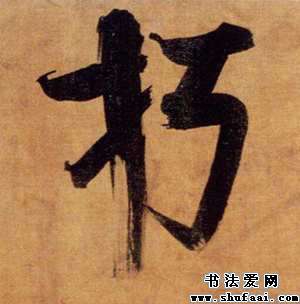 朽
书法爱网
www.shufaai.com